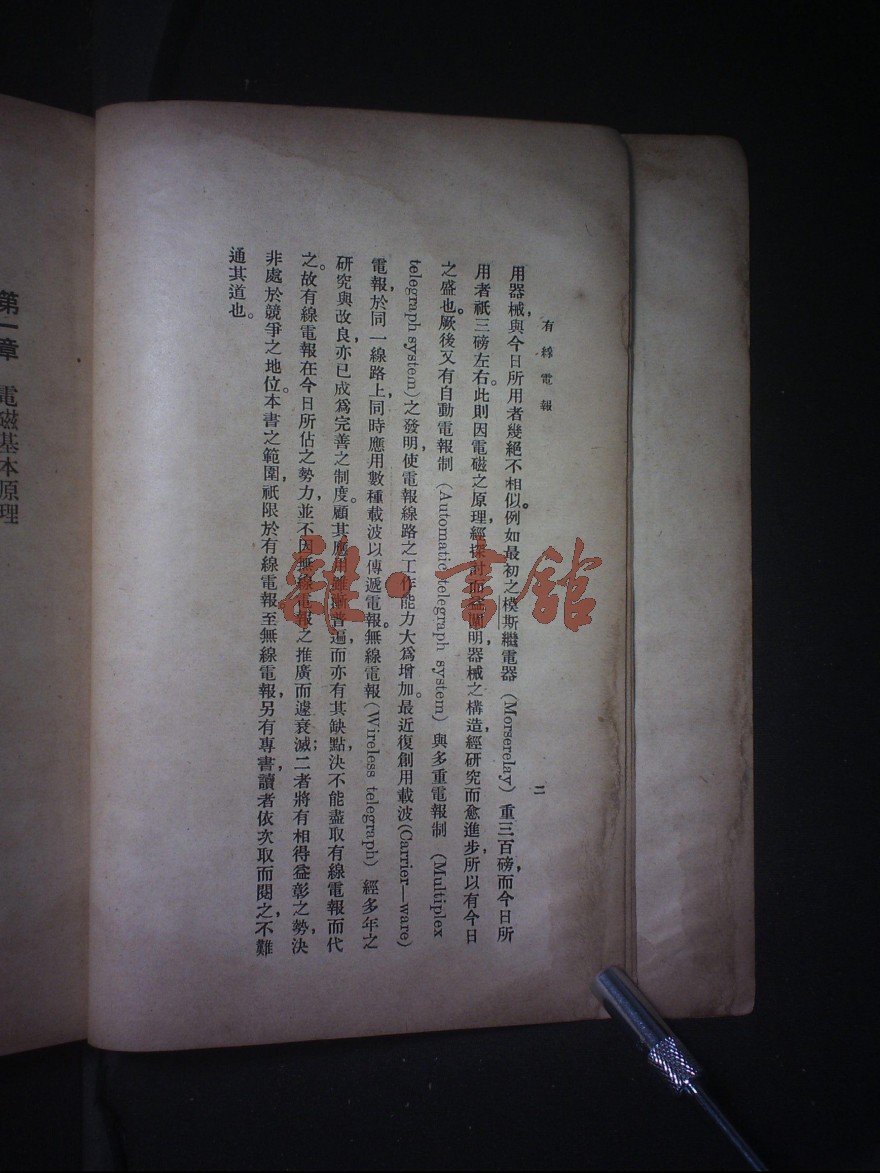 有線電報
二
用器械，與今日所用者幾絕不相似。例如最初之模斯繼電器（Morserelay）重三百磅，而今日所
用者祇三磅左右。此則因電磁之原理，經探討而益闡明，器械之構造，經研究而愈進步，所以有今日
之盛也。厥後又有自動電報制（Automatic telegraph system）與多重電報制（Multiplex
telegraph system）之發明，使電報線路之工作能力大為增加。最近復創用載波（Carrier—ware）
電報，於同一線路上，同時應用數種載波以傳遞電報。無線電報（Wireless telegraph）經多年之
研究與改良，亦已成為完善之制度。顧其應用雖漸普遍，而亦有其缺點，決不能盡取有線電報而代
之。故有線電報在今日所佔之勢力，並不因無線電報之推廣而遽衰滅；二者將有相得益彰之勢，決
非處於競爭之地位。本書之範圍，祇限於有線電報，至無線電報，另有專書，讀者依次取而閱之，不難
通其道也。
第一章 電磁基本原理
雜·書館